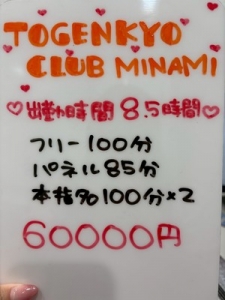 TOGENKYO
CLUB MINAMI
出勤時間 8.5時間
フリー100分
パネル85分
本指名100分×2
60000円